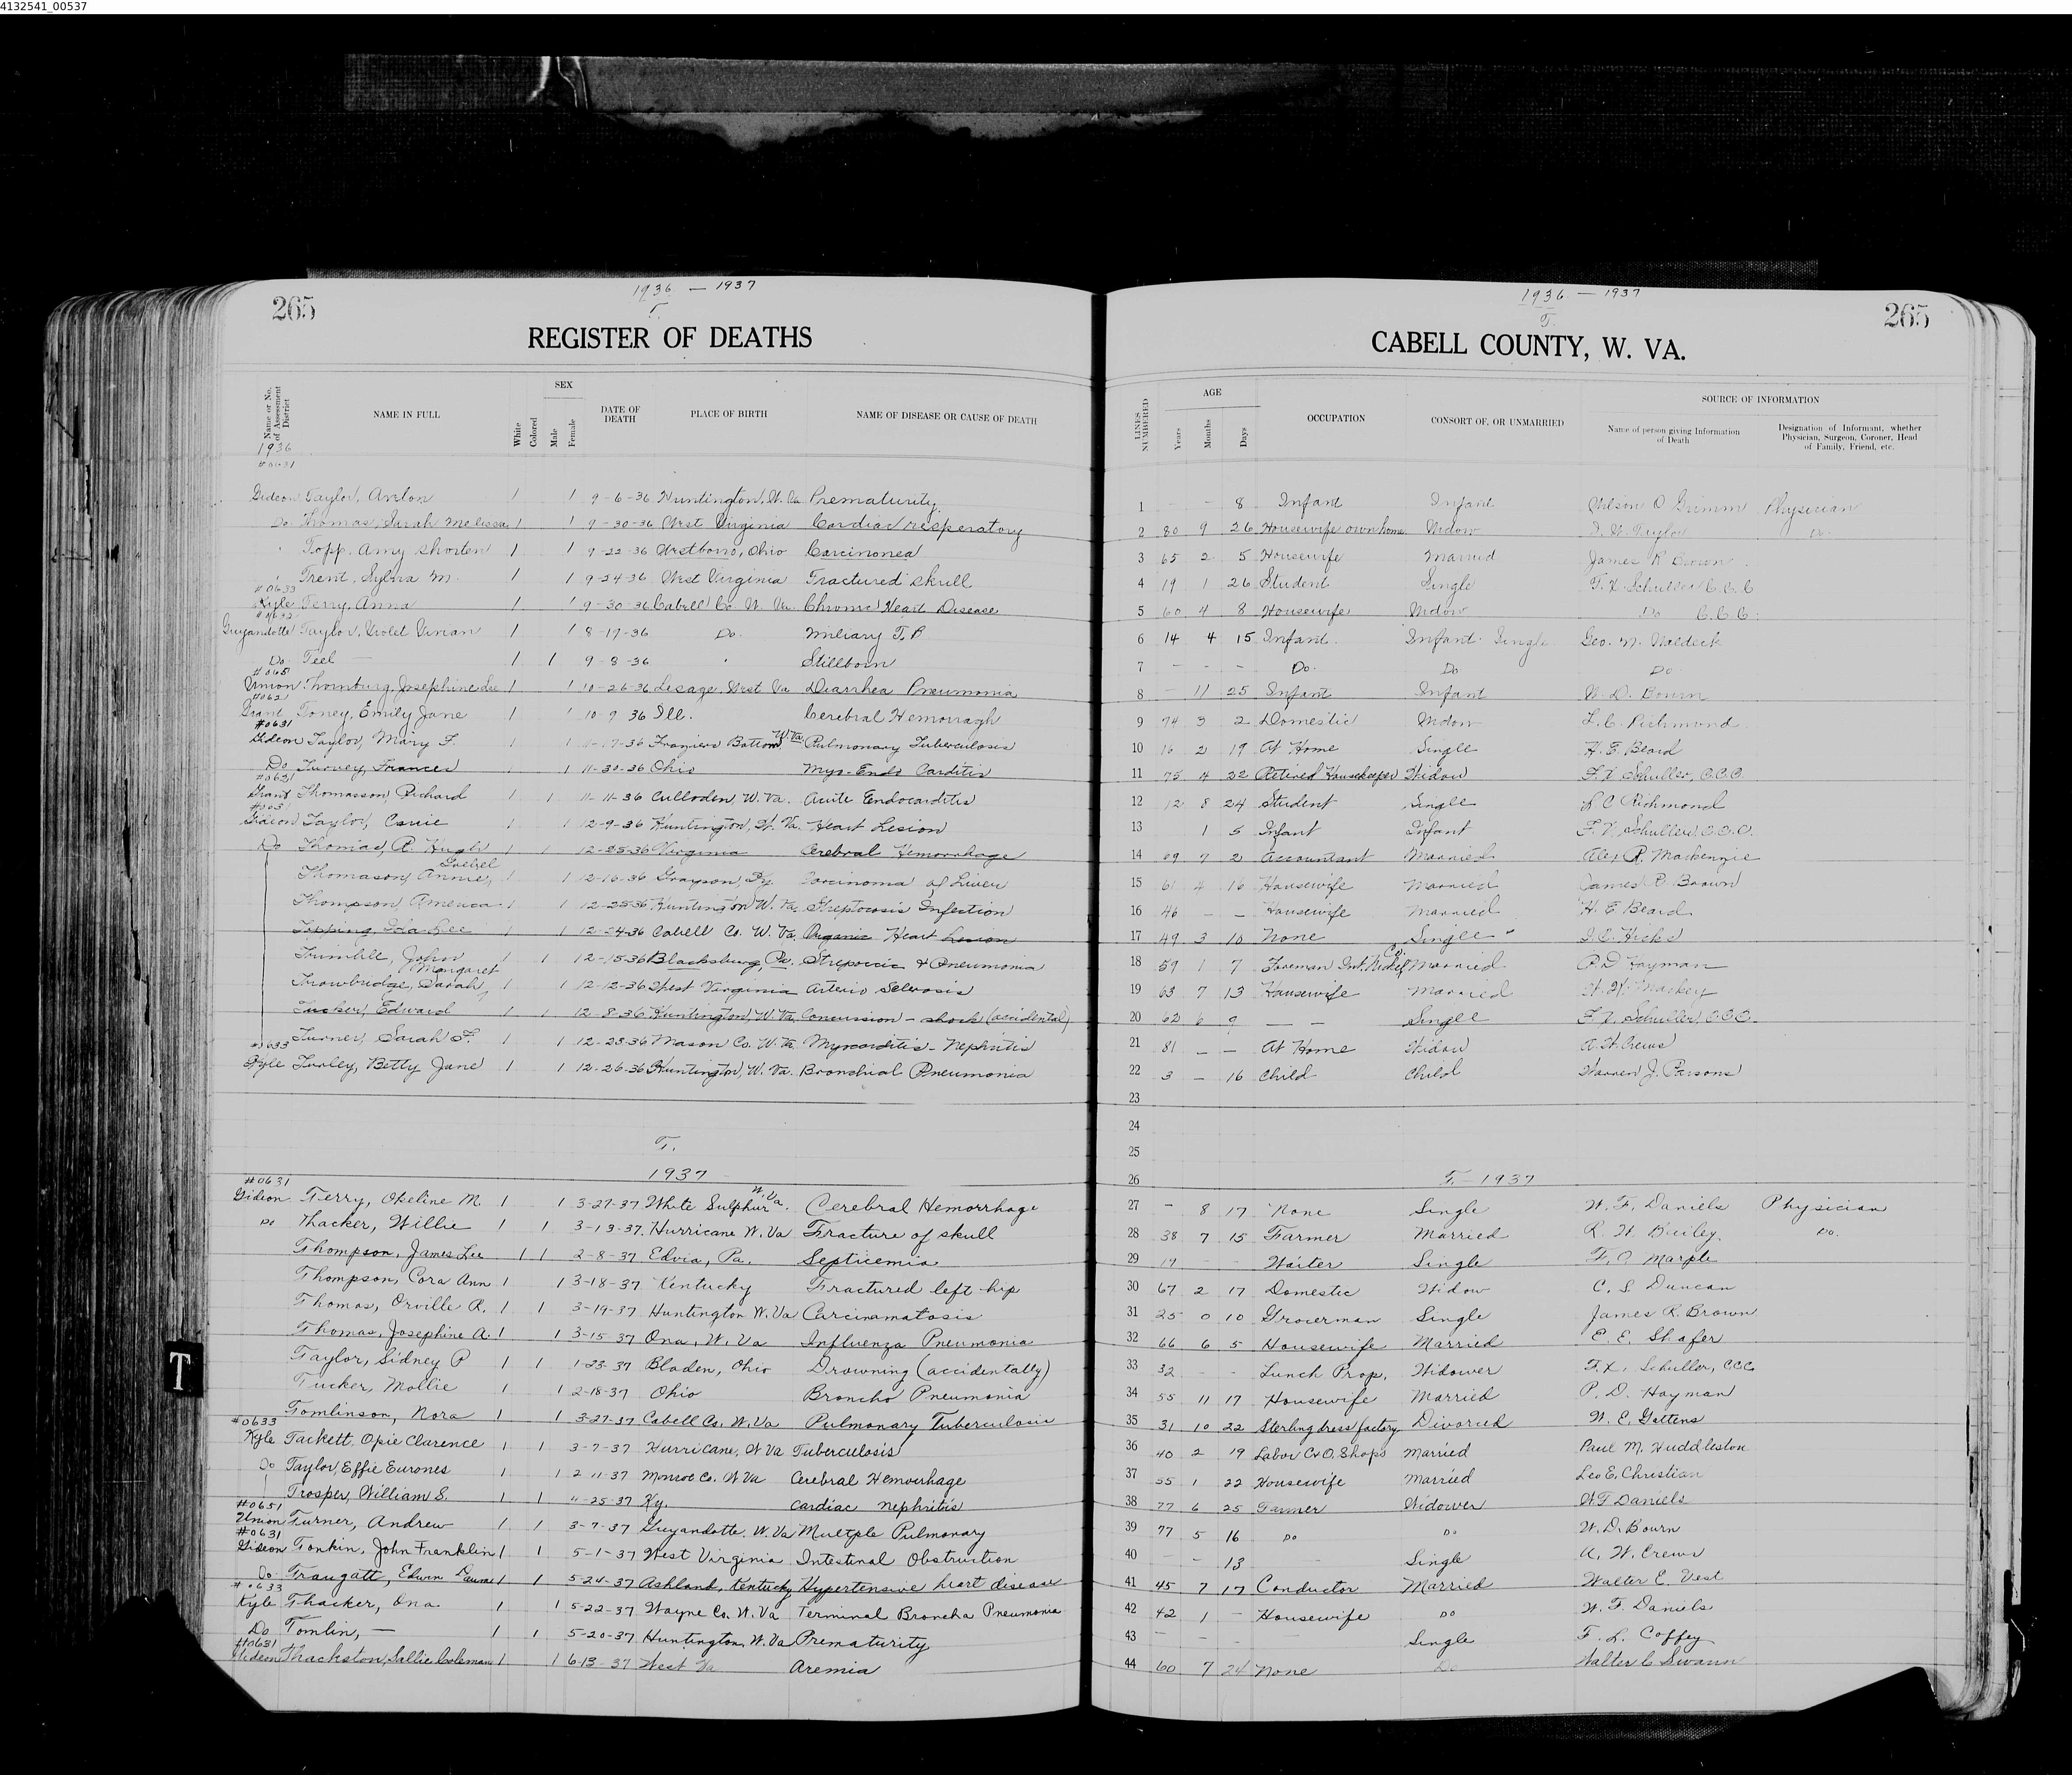 4132541_00537
1936 — 1937
T.
265
REGISTER OF DEATHS
Name or No. of Assessment District
NAME IN FULL
White
Colored
SEX
Male
Female
DATE OF DEATH
PLACE OF BIRTH
NAME OF DISEASE OR CAUSE OF DEATH
1936
#0631
Gideon Taylor, Avelon 1 1 9-6-36 Huntington, W. Va Prematurity
Do Thomas, Sarah Melissa 1 1 9-30-36 West Virginia Cardiac respiratory
Topp, Amy Shorten 1 1 9-22-36 Westboro, Ohio Carcinonea
Trent, Sylvia M. 1 1 9-24-36 West Virginia Fractured skull
#0633
Kyle Terry, Anna 1 1 9-30-36 Cabell Co. W. Va. Chronic Heart Disease
Guyandotte Taylor, Violet Vivian 1 1 8-17-36 Do. Miliary T.B.
Do Teel — 1 1 9-8-36 Stillborn
#0651
Union Thornburg, Josephine Lee 1 1 10-26-36 Lesage, West Va Diarrhea Pneumonia
#0621
Grant Toney, Emily Jane 1 1 10 9 36 Ill. Cerebral Hemorragh
#0631
Gideon Taylor, Mary F. 1 1 17-36 Fraziers Bottom, W.Va. Pulmonary Tuberculosis
Do Turvey, Frances 1 1 11-30-36 Ohio Myo-Endo Carditis
#0621
Grant Thomasson, Richard 1 1 11-11-36 Culloden, W. Va. Acute Endocarditis
Gideon Taylor, Carrie 1 1 12-9-36 Huntington, W. Va. Heart Lesion
Do Thomas, R. Hugh 1 1 12-25-36 Virginia Cerebral Hemorrhage
Thomason, Annie Goebel 1 1 12-16-36 Grayson, Ky. Carcinoma of Liver
Thompson, America 1 1 12-25-36 Huntington W. Va. Streptocosis Infection
Tipping, Ida Lee 1 12-24-36 Cabell Co. W. Va. Organic Heart Lesion
Trimble, John 1 1 12-15-36 Blacksburg, Pa. & Pneumonia
Trowbridge, Sarah Margaret 1 1 12-12-36 West Virginia Arterio Sclerosis
Tucker, Edward 1 1 12-8-36 Huntington, W. Va. Concussion - shock (accidental)
Turner, Sarah F. 1 1 12-23-36 Mason Co. W. Va. Myocarditis - Nephritis
#0633
Kyle Turley, Betty Jane 1 1 12-26-36 Huntington, W. Va. Bronchial Pneumonia
T.
1937
#0631
Gideon Terry, Opeline M. 1 1 3-27-37 White Sulphur W. Va. Cerebral Hemorrhage
Do Thacker, Willie 1 1 3-13-37 Hurricane W. Va Fracture of skull
Thompson, James Lee 1 1 2-8-37 Edvia, Pa. Septicemia
Thompson, Cora Ann 1 1 3-18-37 Kentucky Fractured left hip
Thomas, Orville R. 1 1 3-19-37 Huntington W. Va Carcinamatosis
Thomas, Josephine A. 1 1 3-15 37 Ona, W. Va Influenza Pneumonia
Taylor, Sidney P 1 1 1-23-37 Bladen, Ohio Drowning (accidentally)
Tucker, Mollie 1 1 2-18-37 Ohio Broncho Pneumonia
Tomlinson, Nora 1 1 3-27-37 Cabell Co. W. Va Pulmonary Tuberculosis
#0633
Kyle Tackett, Opie Clarence 1 1 3-7-37 Hurricane, W Va Tuberculosis
Do Taylor, Effie Eurones 1 1 2 11-37 Monroe Co. W Va Cerebral Hemorrhage
Trosper, William S. 1 1 4-25-37 Ky. Cardiac nephritis
#0651
Union Turner, Andrew 1 1 3-7-37 Guyandotte, W. Va Multple Pulmonary
#0631
Gideon Tonkin, John Franklin 1 1 5-1-37 West Virginia Intestinal Obstruction
Do Traugatt, Edwin 1 1 5-24-37 Ashland, Kentucky Hypertensive heart disease
#0633
Kyle Thacker, Ona 1 1 5-22-37 Wayne Co. W. Va Terminal Broncha Pneumonia
Do Tomlin, — 1 1 5-20-37 Huntington, W. Va Prematurity
#0631
Gideon Thackston, Sallie Coleman 1 1 6-13-37 West Va Aremia
T
1936 — 1937
T.
265
CABELL COUNTY, W. VA.
LINES NUMBERED
AGE
Years
Months
Days
OCCUPATION
CONSORT OF, OR UNMARRIED
SOURCE OF INFORMATION
Name of person giving Information of Death
Designation of Informant, whether Physician, Surgeon, Coroner, Head of Family, Friend, etc.
1 - 8 Infant Infant O Grimm Physician
2 80 9 26 Housewife own home Widow Taylor Do
3 65 2 5 Housewife Married James R Brown
4 19 1 26 Student Single F. X. Schuller C.C.C
5 60 4 8 Housewife Widow Do C.C.C.
6 14 4 15 Infant Infant Single Geo. M. Waldeck
7 - - - Do. Do Do
8 - 11 25 Infant Infant W. D. Bourn
9 74 3 2 Domestic Widow L. C. Richmond
10 16 2 19 At Home Single H. E. Beard
11 75 4 22 Retired Housekeeper Widow F. X. Schuller, C.C.C.
12 12 8 24 Student Single L C Richmond
13 1 5 Infant Infant F. X. Schuller C.C.C.
14 69 7 2 Accountant Married Alex R. Mackenzie
15 61 4 16 Housewife Married James R. Brown
16 46 - - Housewife Married H. E Beard
17 49 3 10 None Single I. C. Hicks
18 59 1 7 Foreman Int. Nickel Co. Married P. D Hayman
19 63 7 13 Housewife Married Mackey
20 62 6 9 — — Single F. X. Schuller, C.C.C.
21 81 - - At Home Widow A. W. Crews
22 3 - 16 Child Child Warren J. Parsons
23
24
25
26 T.- 1937
27 - 8 17 None Single W. F. Daniels Physician
28 38 7 15 Farmer Married R. H. Bailey. Do.
29 17 - - Waiter Single F. C. Marple
30 67 2 17 Domestic Widow C. S. Duncan
31 25 0 10 Grocerman Single James R. Brown
32 66 6 5 Housewife Married E. E. Shafer
33 32 - - Lunch Prop. Widower F. X. Schuller, CCC
34 55 11 17 Housewife Married P. D. Hayman
35 31 10 22 Sterling dress factory Divorced W. E. Gattens
36 40 2 19 Labor C&O. Shops Married Paul M. Huddleston
37 55 1 22 Housewife Married Leo E. Christian
38 77 6 25 Farmer Widower W F Daniels
39 77 5 16 Do Do W. D. Bourn
40 - - 13 Single A. W. Crews
41 45 7 17 Conductor Married Walter E. Vest
42 42 1 - Housewife Do W. F. Daniels
43 - - - Single F. L. Coffey
44 60 7 24 None Do Walter C Swann